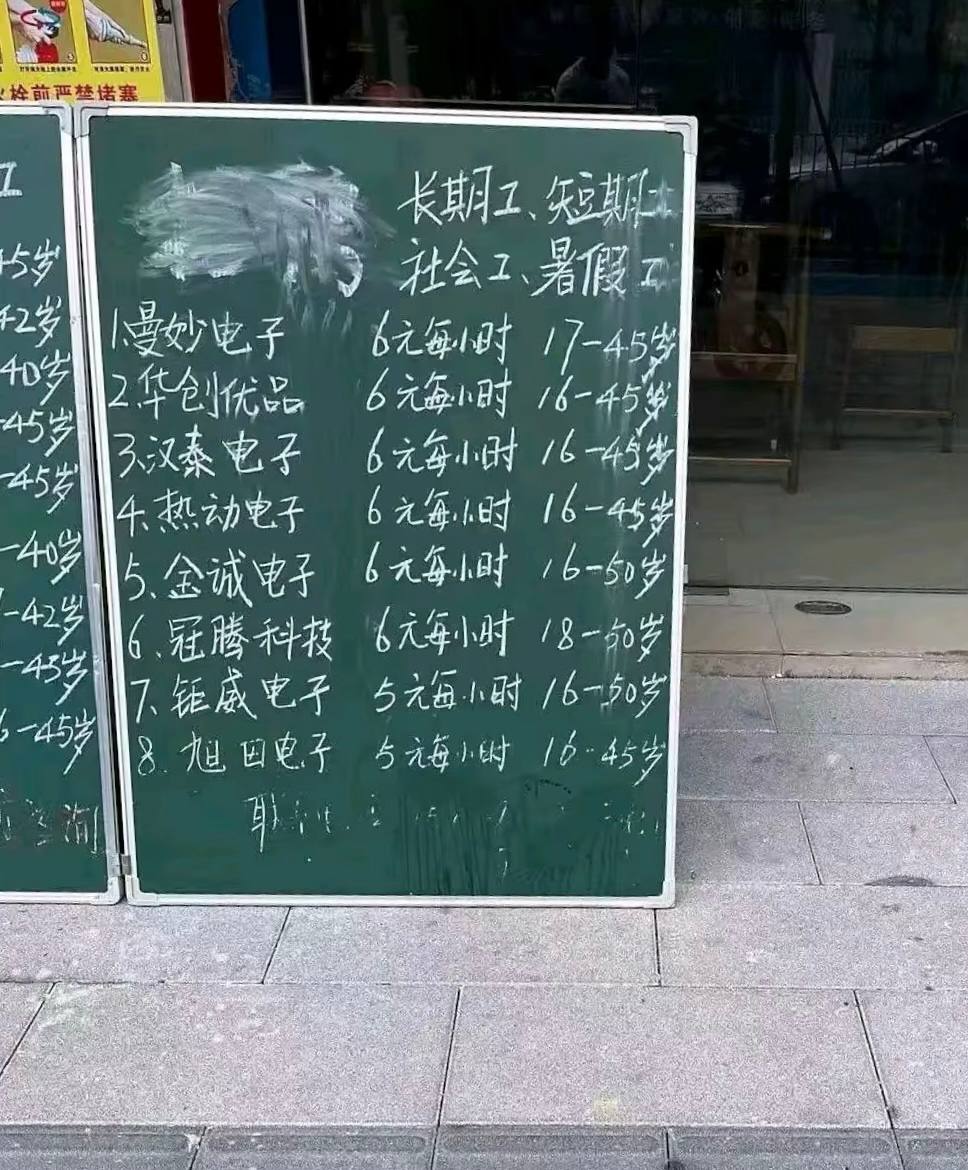 火栓前严禁堵塞
工
45岁
42岁
40岁
-45岁
-45岁
-40岁
-42岁
-45岁
6-45岁
长期工、短期工
社会工、暑假工
1.曼妙电子 6元每小时 17-45岁
2.华创优品 6元每小时 16-45岁
3.汉泰电子 6元每小时 16-45岁
4.热动电子 6元每小时 16-45岁
5.金诚电子 6元每小时 16-50岁
6.冠腾科技 6元每小时 18-50岁
7.钜威电子 5元每小时 16-50岁
8.旭田电子 5元每小时 16-45岁